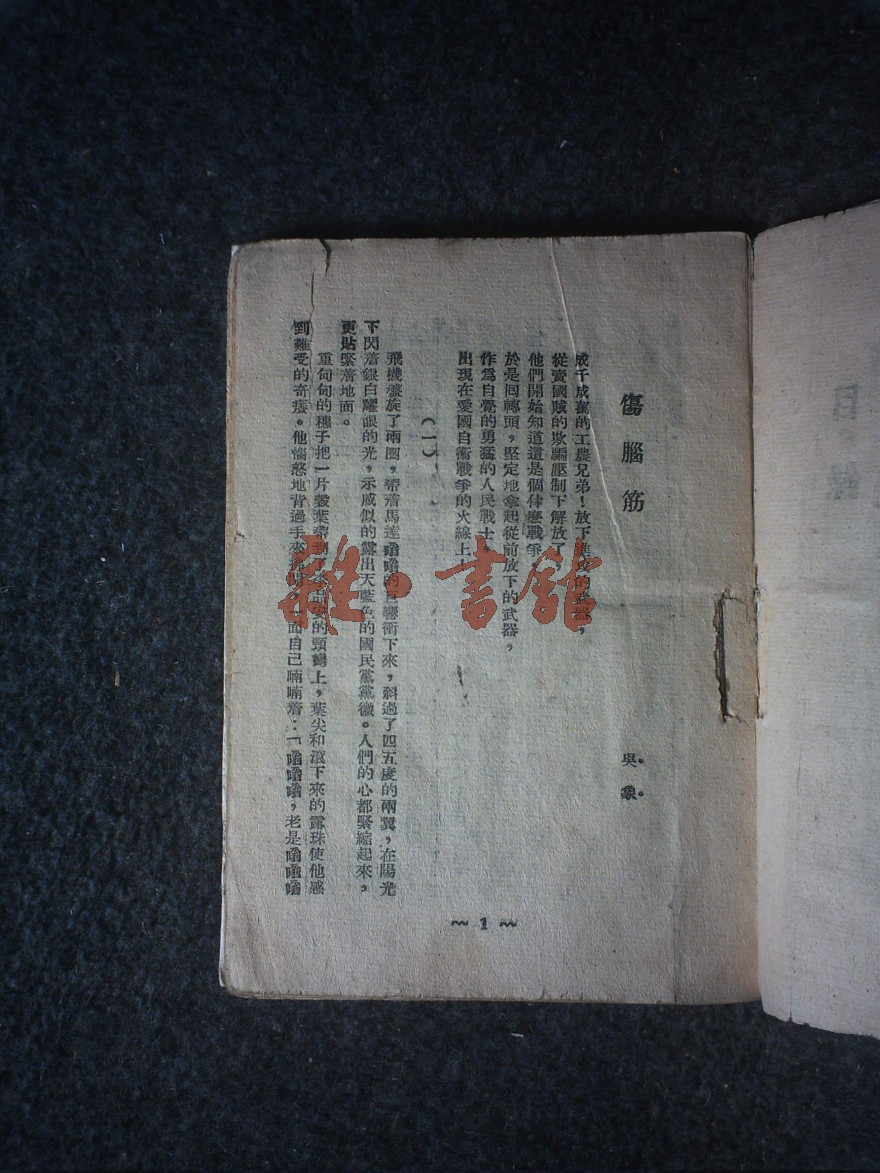 傷腦筋
吳象
成千成萬的工農兄弟！放下進攻的武器，
從賣國賊的欺騙壓制下解放了
他們開始知道這是個什麼戰爭
於是回轉頭，堅定地拿起從前放下的武器，
作爲自覺的勇猛的人民戰士，
出現在愛國自衛戰爭的火線上
（一）
飛機盤旋了兩圈，帶着馬達嗡嗡的巨響衝下來，斜過了四五度的兩翼，在陽光
下閃着銀白耀眼的光，示威似的露出天藍色的國民黨黨徽。人們的心都緊縮起來，
更貼緊着地面。
重甸甸的穗子把一片穀葉帶到了 的頸 上，葉尖和滾下來的露珠使他感
到難受的奇癢。他惱怒地背過手來 一面自己喃喃着：「嗡嗡嗡，老是嗡嗡嗡
～1～
雜·書館